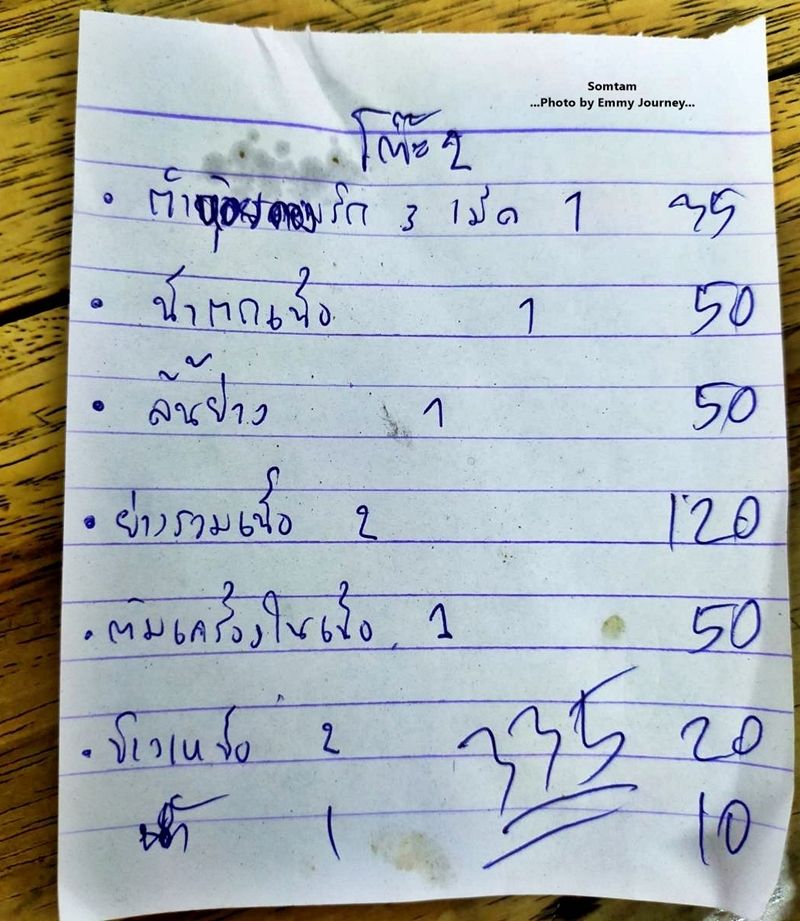 Somtam
...Photo by Emmy Journey...
โต๊ะ 2
• ตำ พริก 3 เม็ด 1 35
• น้ำตกเนื้อ 1 50
• ลิ้นย่าง 1 50
• ย่างรวมเนื้อ 2 120
• ต้มเครื่องในเนื้อ 1 50
• ข้าวเหนียว 2 335 20
น้ำ 1 10